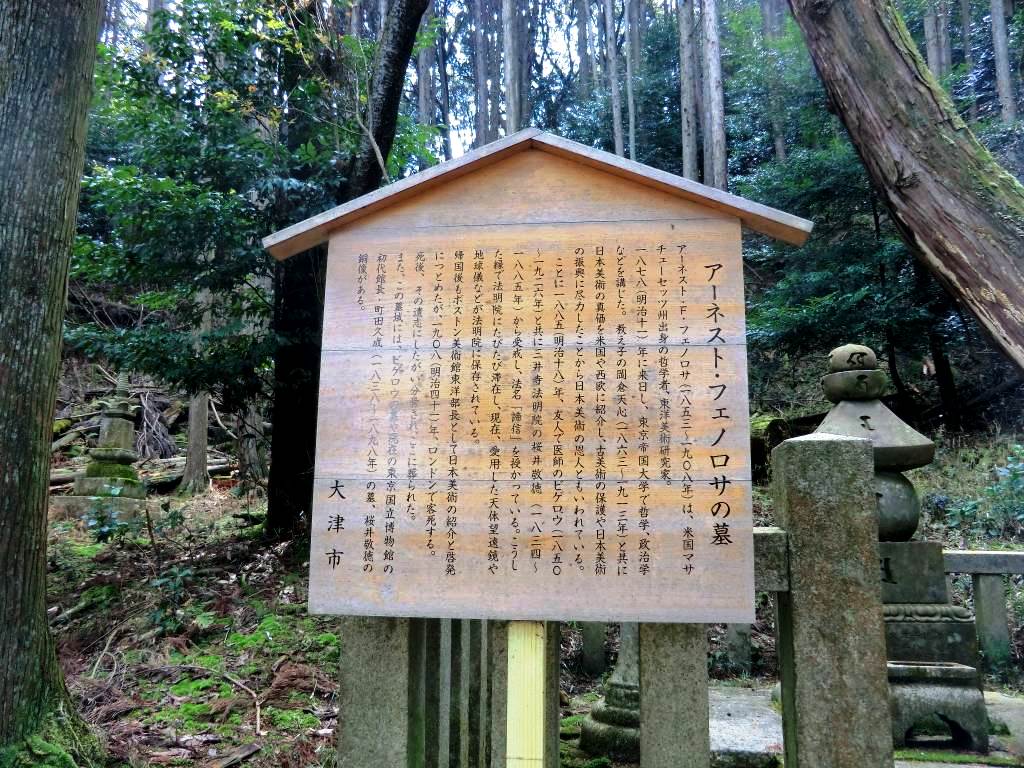 アーネスト・フェノロサの墓
アーネスト・F・フェノロサ(一八五三〜一九〇八年)は、米国マサ
チューセッツ州出身の哲学者、東洋美術研究家。
一八七八(明治十一)年に来日し、東京帝国大学で哲学・政治学
などを講じた。教え子の岡倉天心(一八六三〜一九一三年)と共に
日本美術の真価を米国や西欧に紹介し、古美術の保護や日本美術
の振興に尽力したことから日本美術の恩人ともいわれている。
ことに一八八五(明治十八)年、友人で医師のビゲロウ(一八五〇
〜一九二六年)と共に三井寺法明院の桜井敬徳(一八三四〜
一八八五年)から受戒し、法名「諦信」を授かっている。こうし
た縁で法明院にたびたび滞在し、現在、愛用した天体望遠鏡や
地球儀などが法明院に保存されている。
帰国後もボストン美術館東洋部長として日本美術の紹介と啓発
につとめたが、一九〇八(明治四十一)年、ロンドンで客死する。
死後、その遺志にしたがい分骨され、ここに葬られた。
また、この墓域には、ビゲロウの墓や現在の東京国立博物館の
初代館長・町田久成(一八三八〜一八九八年)の墓、桜井敬徳の
銅像がある。
大津市